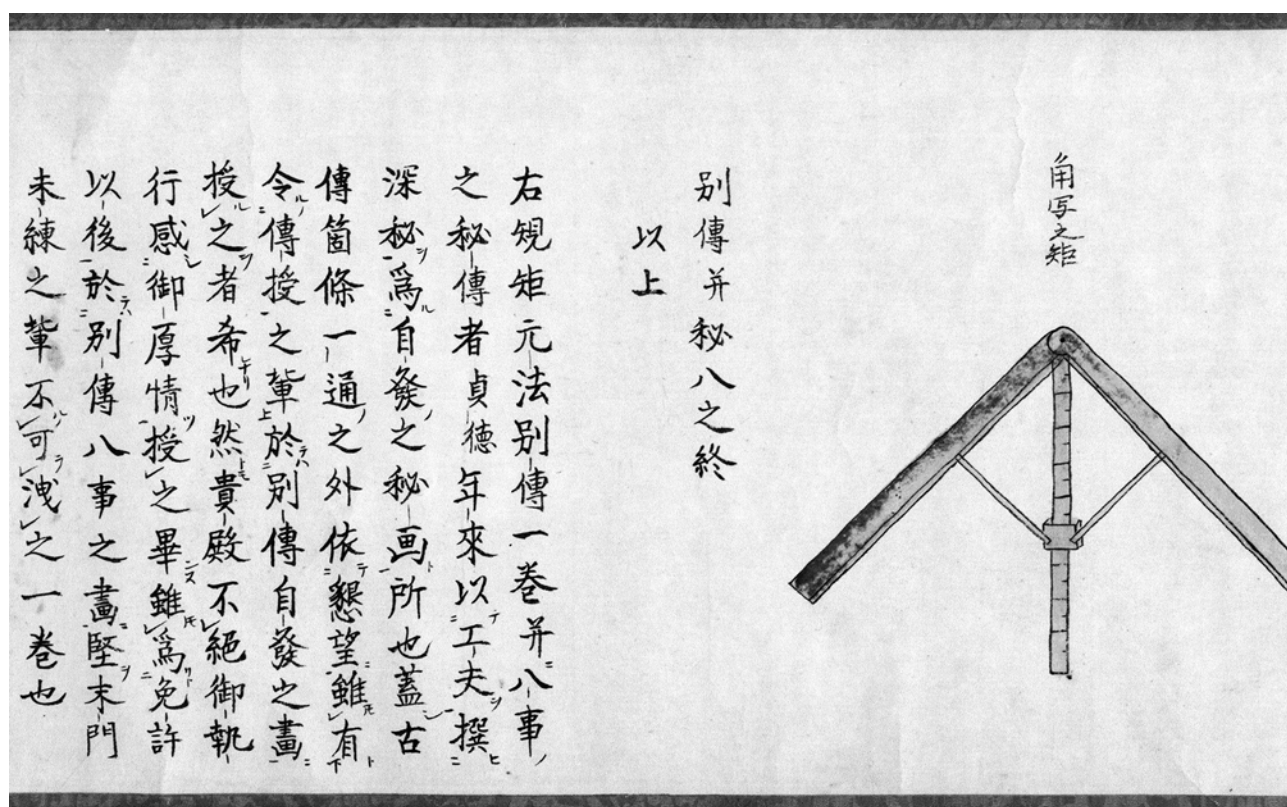 角写之矩
別傳并秘八之終
以上
右規矩元法別傳一巻并八事
之秘傳者貞德年來以工夫撰
深秘爲自發之秘画所也蓋古
傳箇條一通之外依懇望雖有
令傳授之輩於別傳自發之畫
授之者希也然貴殿不絕御執
行感御厚情授之畢雖爲免許
以後於別傳八事之畫堅末門
未練之輩不可洩之一巻也